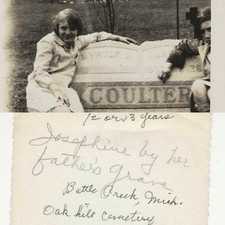 COULTER
12 or 13 years
Josephine by her
father's grave.
Battle Creek, Mich.
Oak hill cemetery